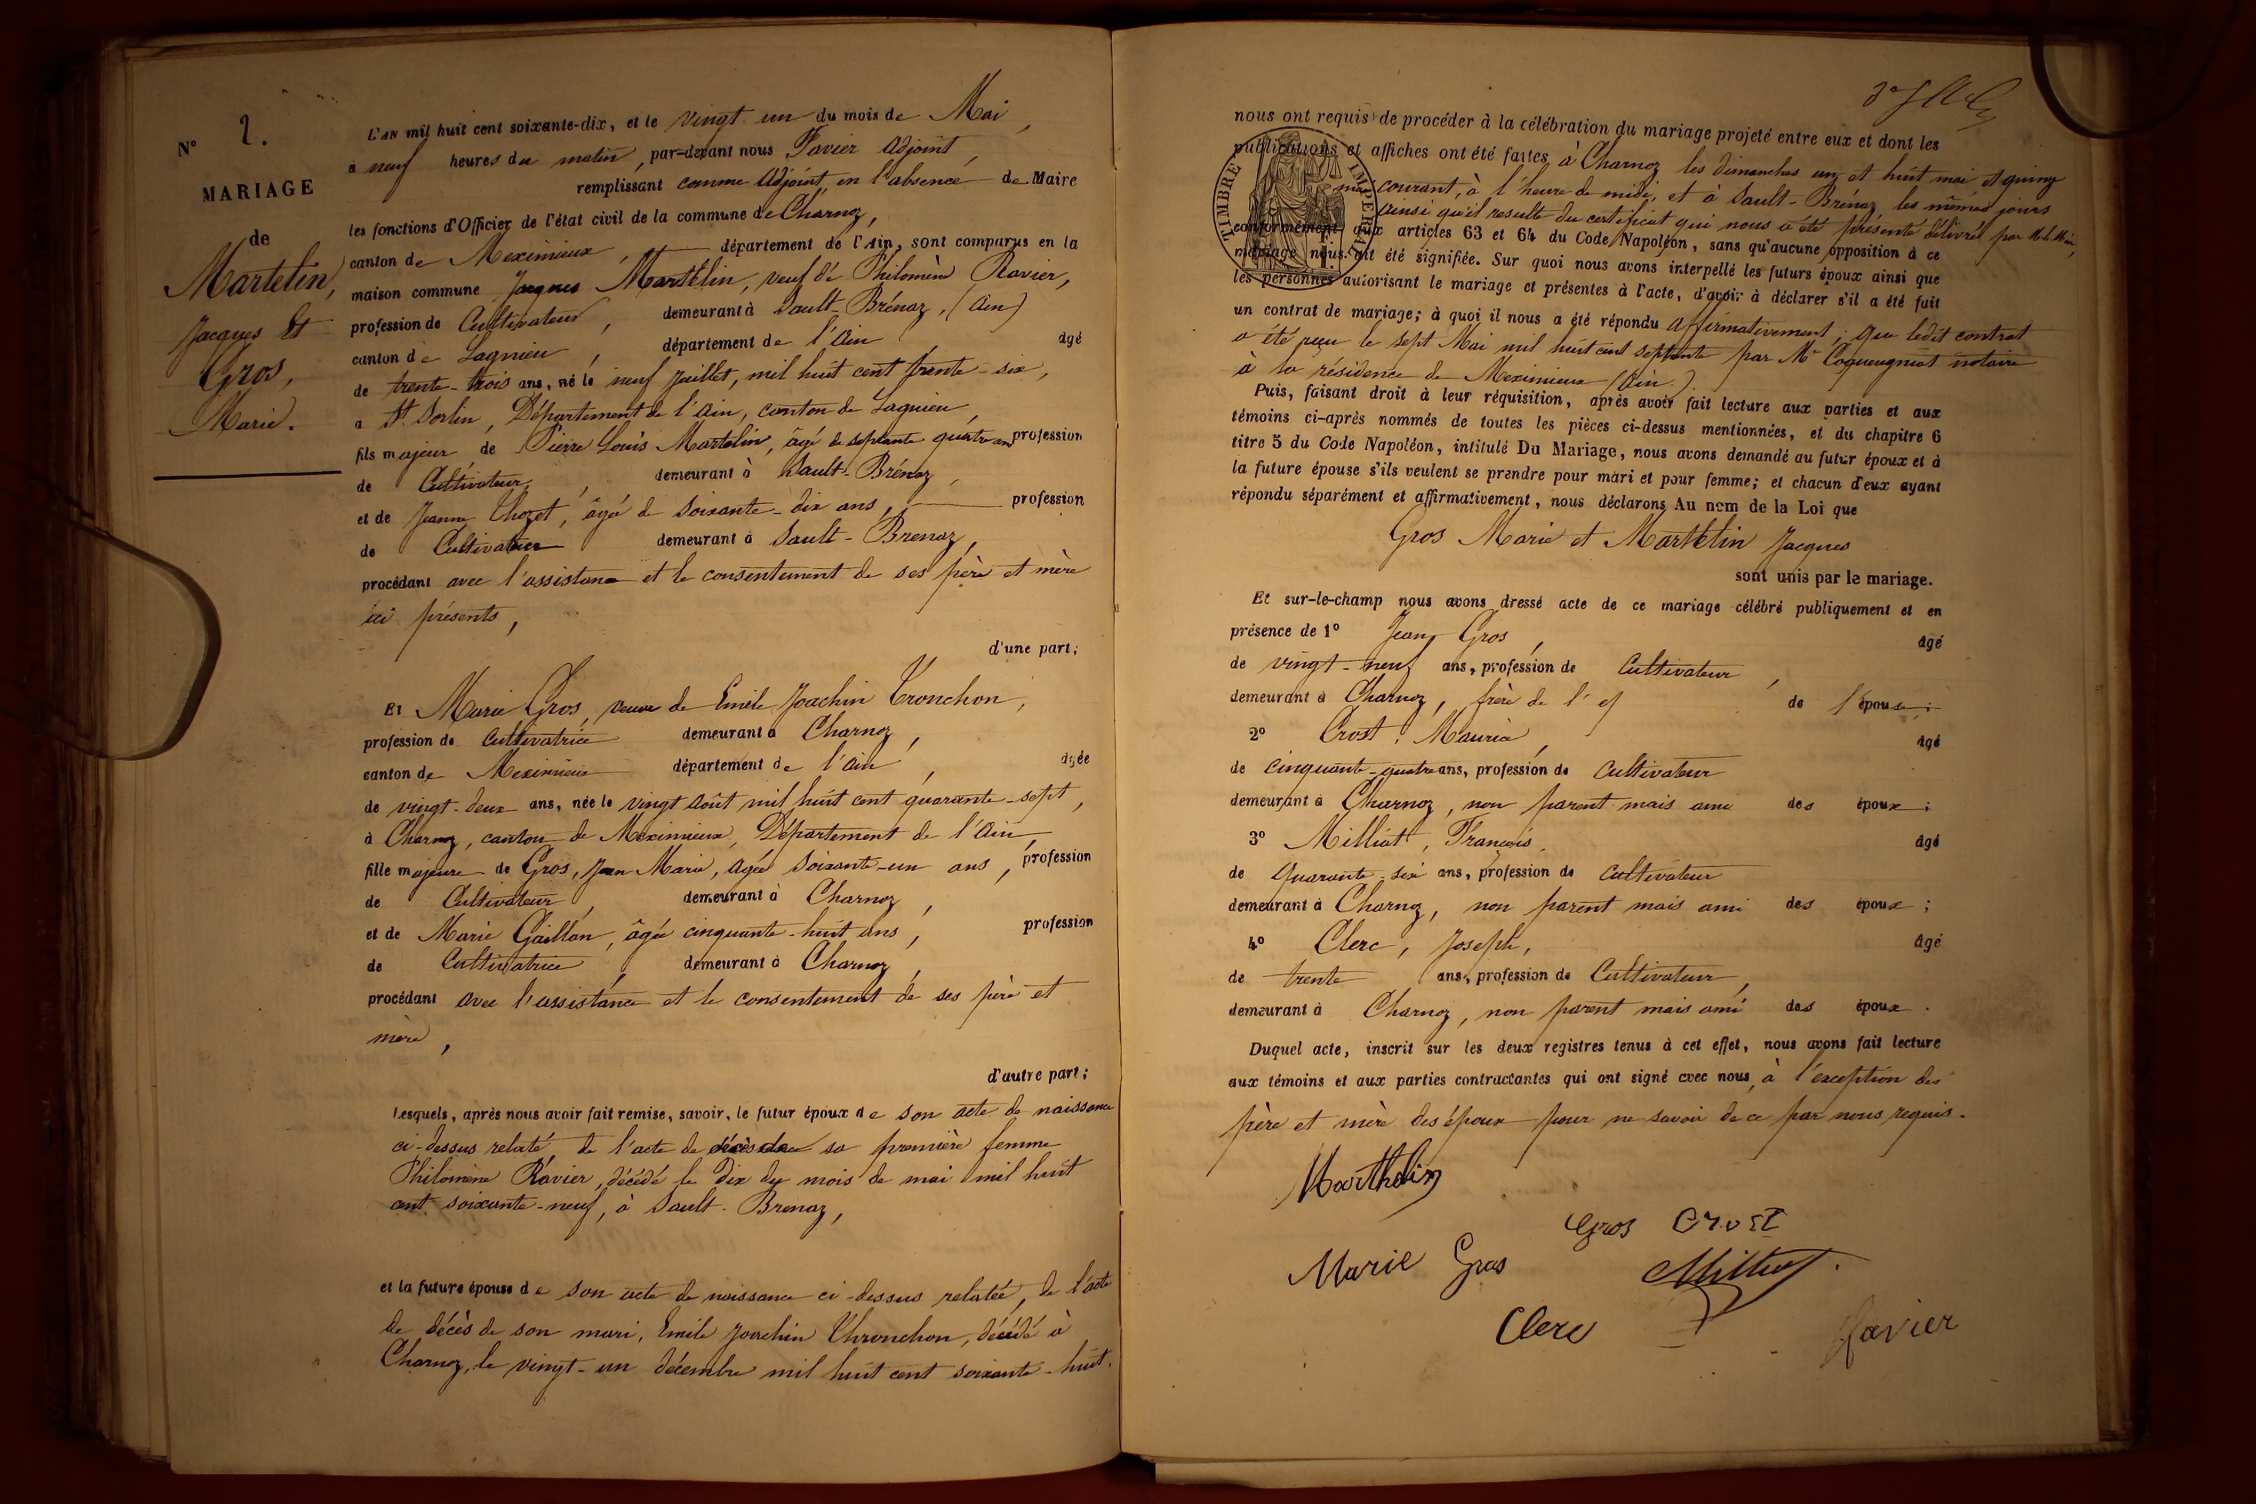 N° 2.
MARIAGE
de
Martelin,
Jacques Et
Gros,
Marie.
L'AN mil huit cent soixante-dix, et le vingt un du mois de Mai,
à neuf heures du matin, par-devant nous Favier Adjoint,
remplissant comme Adjoint, en l'absence de Maire
les fonctions d'Officier de l'état civil de la commune de Charnoz,
canton de Meximieux, département de l'Ain, sont comparus en la
maison commune Jacques Marthelin, veuf de Philomène Ravier,
profession de Cultivateur, demeurant à Sault-Brénaz, (Ain)
canton de Lagnieu, département de l'Ain âgé
de trente-trois ans, né le neuf Juillet, mil huit cent trente-six,
à St Sorlin, Département de l'Ain, canton de Lagnieu,
fils majeur de Pierre Louis Martelin, âgé de septante quatre ans profession
de Cultivateur, demeurant à Sault-Brénaz,
et de Jeanne Chozet, âgé de soixante-dix ans, profession
de Cultivateur demeurant à Sault-Brenaz,
procédant avec l'assistance et le consentement de ses père et mère
ici présents,
d'une part;
Et Marie Gros, veuve de Emile Joachin Tronchon,
profession de Cultivatrice demeurant à Charnoz,
canton de Meximieux département de l'Ain, âgée
de vingt-deux ans, née le vingt Août mil huit cent quarante-sept,
à Charnoz, canton de Meximieux, Département de l'Ain,
fille majeure de Gros, Jean Marie, agée soixante-un ans, profession
de Cultivateur, demeurant à Charnoz,
et de Marie Gaillon, âgée cinquante-huit ans, profession
de Cultivatrice, demeurant à Charnoz,
procédant avec l'assistance et le consentement de ses père et
mère,
d'autre part;
Lesquels, après nous avoir fait remise, savoir, le futur époux de son acte de naissance
ci-dessus relaté de l'acte de décès de sa première femme
Philomène Ravier, décédé le Dix du mois de mai mil huit
cent soixante-neuf, à Sault-Brenaz,
et la future épouse de son acte de naissance ci-dessus relatée, de l'acte
de décès de son mari, Emile Joachin Thronchon, décédé à
Charnoz, le vingt-un décembre mil huit cent soixante-huit.
nous ont requis de procéder à la célébration du mariage projeté entre eux et dont les
publications et affiches ont été faites à Charnoz les dimanches un et huit mai et quinze
courant, à l'heure de midi, et à Sault-Brénaz les mêmes jours
ainsi qu'il resulte du certificat qui nous a été présenté délivré par
TIMBRE IMPERIAL
conformément aux articles 63 et 64 du Code Napoléon, sans qu'aucune opposition à ce
mariage nous ait été signifiée. Sur quoi nous avons interpellé les futurs époux ainsi que
les personnes autorisant le mariage et présentes à l'acte, d'avoir à déclarer s'il a été fait
un contrat de mariage; à quoi il nous a été répondu affirmativement; que ledit contrat
a été reçu le sept Mai mil huit cent septante par Me Coqueugniot notaire
à la résidence de Meximieux (Ain).
Puis, faisant droit à leur réquisition, après avoir fait lecture aux parties et aux
témoins ci-après nommés de toutes les pièces ci-dessus mentionnées, et du chapitre 6
titre 5 du Code Napoléon, intitulé Du Mariage, nous avons demandé au futur époux et à
la future épouse s'ils veulent se prendre pour mari et pour femme; et chacun d'eux ayant
répondu séparément et affirmativement, nous déclarons Au nom de la Loi que
Gros Marie et Marthelin Jacques
sont unis par le mariage.
Et sur-le-champ nous avons dressé acte de ce mariage célébré publiquement et en
présence de 1° Jean Gros, âgé
de vingt-neuf ans, profession de Cultivateur,
demeurant à Charnoz, frère de l' de l'épouse;
2° Crost, Maurice, âgé
de cinquante-quatre ans, profession de Cultivateur
demeurant à Charnoz, non parent mais ami des époux;
3° Milliat, François, âgé
de quarante-six ans, profession de Cultivateur
demeurant à Charnoz, non parent mais ami des époux;
4° Clerc, Joseph, âgé
de trente ans, profession de Cultivateur,
demeurant à Charnoz, non parent mais ami des époux.
Duquel acte, inscrit sur les deux registres tenus à cet effet, nous avons fait lecture
aux témoins et aux parties contractantes qui ont signé avec nous, à l'exception des
père et mère des époux pour ne savoir de ce par nous requis.
Marthelin
Gros Crost
Marie Gros
Milliat
Clerc
Favier